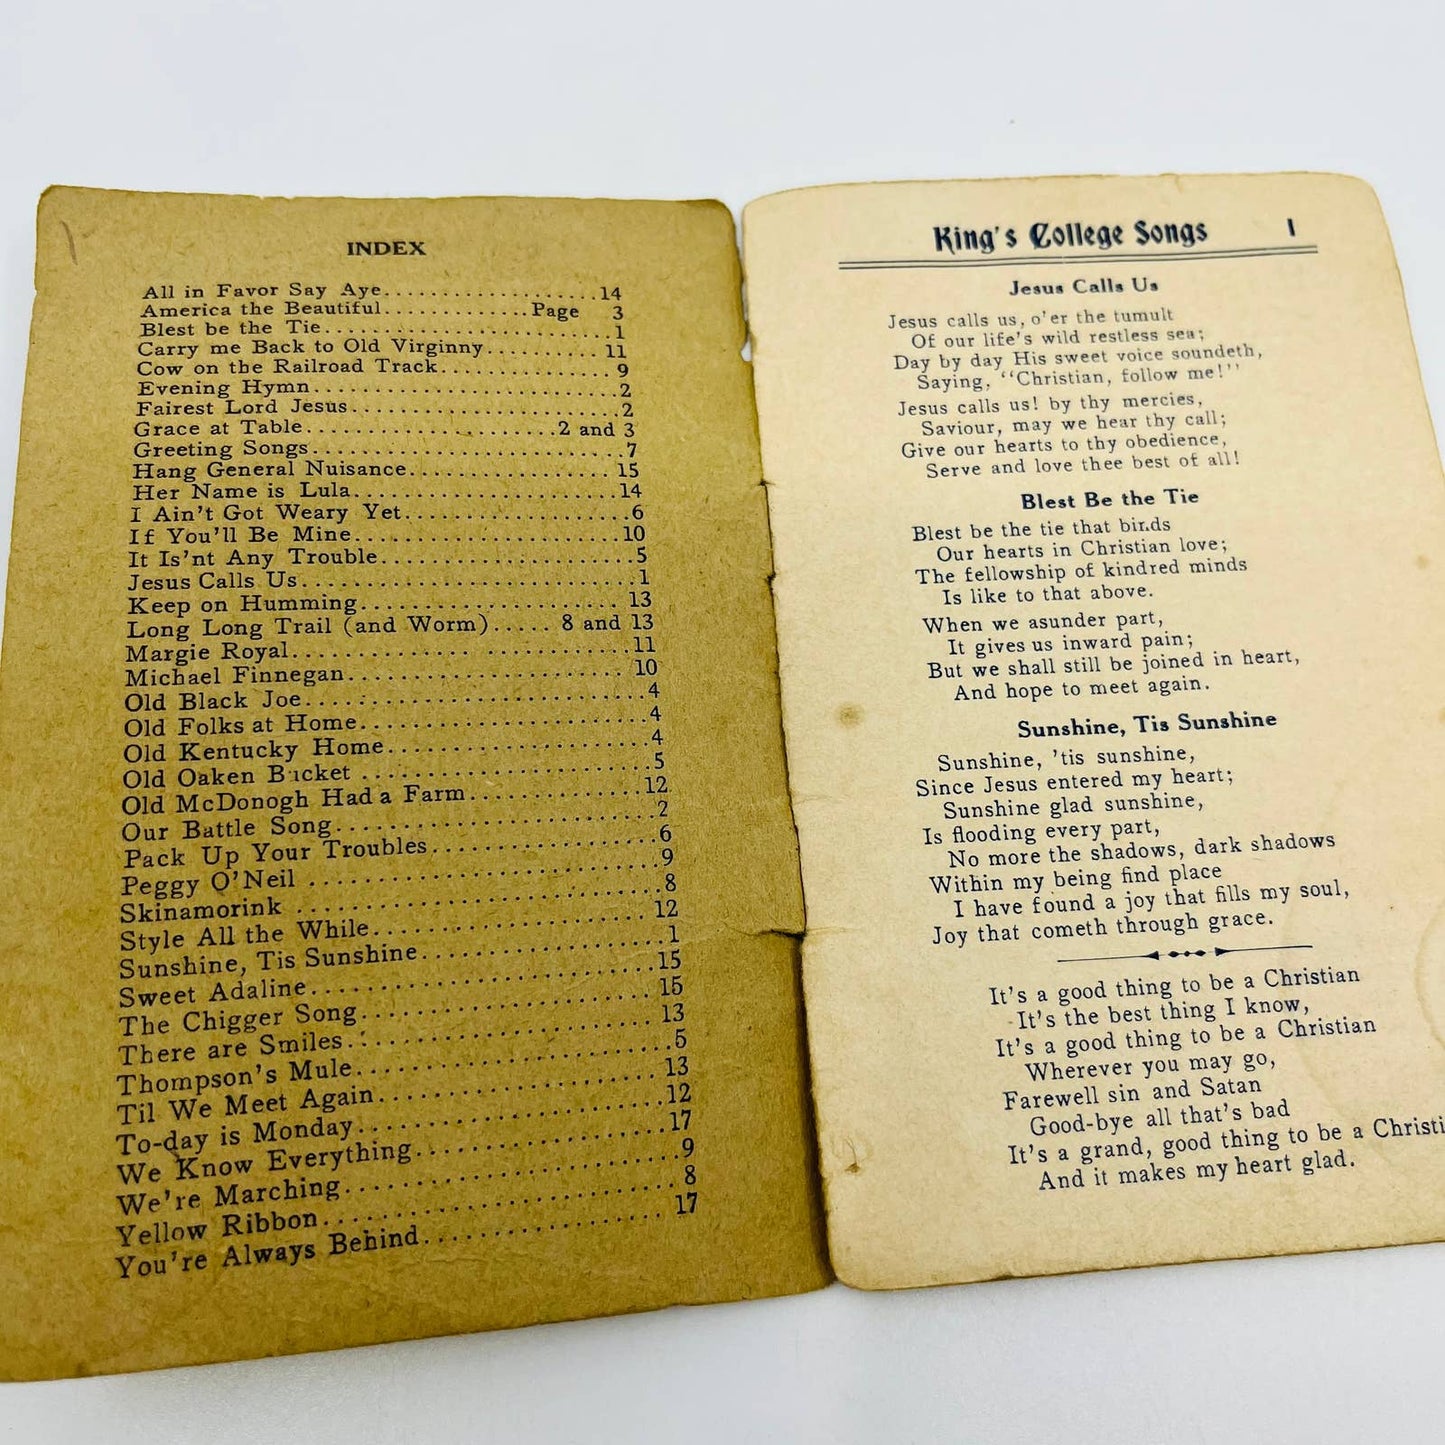 INDEX
All in Favor Say Aye....................14
America the Beautiful.............Page 3
Blest be the Tie...........................1
Carry me Back to Old Virginny..........11
Cow on the Railroad Track................9
Evening Hymn............................2
Fairest Lord Jesus.........................2
Grace at Table........................2 and 3
Greeting Songs............................7
Hang General Nuisance...................15
Her Name is Lula........................14
I Ain't Got Weary Yet.....................6
If You'll Be Mine........................10
It Is'nt Any Trouble.......................5
Jesus Calls Us..............................1
Keep on Humming....................... 13
Long Long Trail (and Worm)..... 8 and 13
Margie Royal..............................11
Michael Finnegan......................... 10
Old Black Joe..............................4
Old Folks at Home.........................4
Old Kentucky Home.......................4
Old Oaken Bucket ........................5
Old McDonogh Had a Farm...............12
Our Battle Song...........................2
Pack Up Your Troubles....................6
Peggy O'Neil .............................9
Skinamorink ..............................8
Style All the While....................... 12
Sunshine, Tis Sunshine....................1
Sweet Adaline............................15
The Chigger Song........................ 15
There are Smiles......................... 13
Thompson's Mule..........................5
Til We Meet Again....................... 13
To-day is Monday........................12
We Know Everything.....................17
We're Marching...........................9
Yellow Ribbon............................ 8
You're Always Behind.................... 17
King's College Songs 1
Jesus Calls Us
Jesus calls us, o'er the tumult
Of our life's wild restless sea;
Day by day His sweet voice soundeth,
Saying, "Christian, follow me!"
Jesus calls us! by thy mercies,
Saviour, may we hear thy call;
Give our hearts to thy obedience,
Serve and love thee best of all!
Blest Be the Tie
Blest be the tie that binds
Our hearts in Christian love;
The fellowship of kindred minds
Is like to that above.
When we asunder part,
It gives us inward pain;
But we shall still be joined in heart,
And hope to meet again.
Sunshine, Tis Sunshine
Sunshine, 'tis sunshine,
Since Jesus entered my heart;
Sunshine glad sunshine,
Is flooding every part,
No more the shadows, dark shadows
Within my being find place
I have found a joy that fills my soul,
Joy that cometh through grace.
It's a good thing to be a Christian
It's the best thing I know,
It's a good thing to be a Christian
Wherever you may go,
Farewell sin and Satan
Good-bye all that's bad
It's a grand, good thing to be a Christi
And it makes my heart glad.